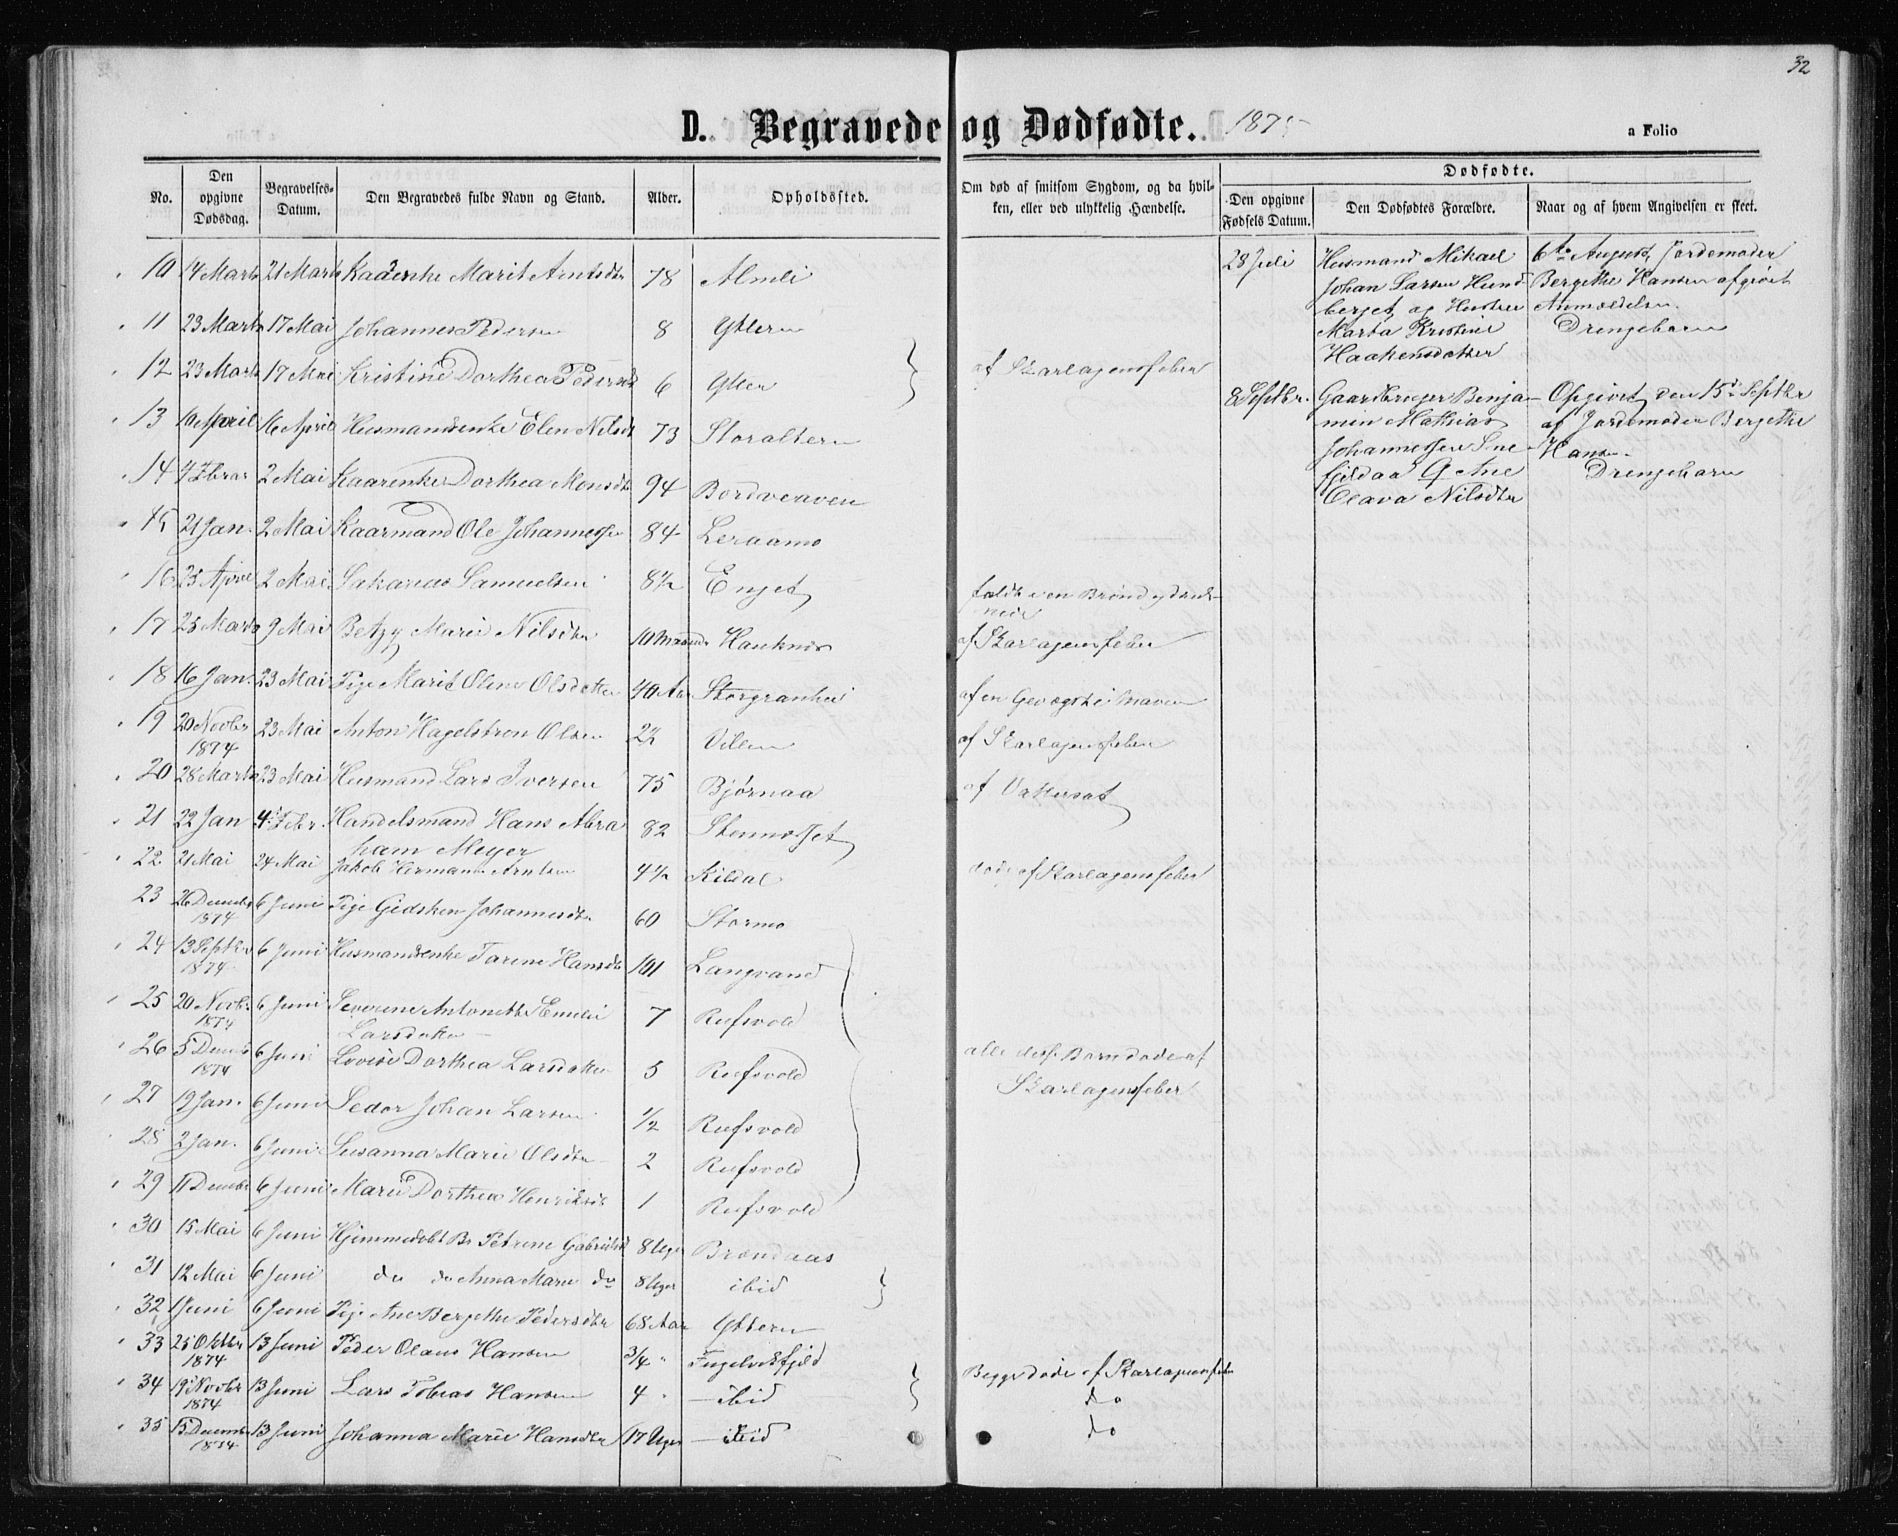 32
D. Begravede og Dødfødte. 1875
a Folio
No. Den opgivne Dødsdag. Begravelses-Datum. Den Begravedes fulde Navn og Stand. Alder. Opholdssted. Om død af smitsom Sygdom, og da hvilken, eller ved ulykkelig Hændelse. Dødfødte. Den opgivne Fødsels Datum. Den Dødfødtes Forældre. Naar og af hvem Angivelsen er skeet.
10 14 Marts 21 Marts Kaarenke Marit Arntsdtr 78 Almli
11 23 Marts 17 Mai Johannes Pedersen 8 Yttern
12 23 Marts 17 Mai Kristine Dorthea Pedersd 6 Ytter af Skarlagensfeber
13 10 April 16 April Husmandsenke Elen Nilsdt 73 Storaltern
14 4 Febrar 2 Mai Kaarenke Dorthea Monsdtr 94 Bordvedaven
15 21 Jan. 2 Mai Kaarmand Ole Johannessen 84 Leraamo
16 25 April 2 Mai Sakarias Samuelsen 8½ Enget faldt i en Brønd og druk-
nede
17 25 Marts 9 Mai Betzy Marie Nilsdtr 10 Maaned Hauknes af Skarlagensfeber
18 16 Jan. 23 Mai Pige Marit Oline Olsdatter 40 Aar Storgranhei af en Gevægst i Maven
19 20 Novbr 1874 23 Mai Anton Hagelstrøn Olsen 22 Villen af Skarlagensfeber
20 28 Marts 23 Mai Husmand Lars Iversen 75 Bjørnaa af Vattersot
21 22 Jan 4 Febr. Handelsmand Hans Abra
ham Meyer 82 Stennesset
22 21 Mai 24 Mai Jakob Hermann Arntsen 4½ Kildal døde af Skarlagensfeber
23 26 Decembr 1874 6 Juni Pige Gidsken Johannesdtr 60 Stormo
24 13 Septbr 1874 6 Juni Husmandsenke Tarine Hansdtr 101 Langvand
25 20 Novbr. 1874 6 Juni Severine Antonette Emilie
Larsdatter 7 Rufsvold
26 5 Decmb 1874 6 Juni Lovise Dorthea Larsdatter 5 Rufsvold alle disse Børn døde af
Skarlagensfeber
27 19 Jan. 6 Juni Peder Johan Larsen ½ Rufsvold
28 2 Jan. 6 Juni Susanna Marie Olsdtr 2 Rufsvold
29 11 Decembr 6 Juni Marie Dorthea Henriksdt 1 Rufsvold
30 15 Mai 6 Juni Hjemmedøbt Br. Petrine Gabrielsd 8 Uger Brændaas
31 12 Mai 6 Juni do do Anna Marie do 8 Uger ibid
32 1 Juni 6 Juni Pige Ane Bergette Pedersdtr 68 Aar Yttern
33 25 Oktbr 1874 13 Juni Peder Olaus Hansen ¾ " Fugelvikfjeld
34 19 Novbr 1874 13 Juni Lars Tobias Hansen 4 " — ibid Begge døde af Skarlagensfeber
do
35 15 Decembr 1874 13 Juni Johanna Marie Hansdtr 17 Uger — ibid do
28 Juli Husmand Mikael
Johan Larsen Hund
berget og Hustru
Marta Kristine
Haakensdatter
6te August, Jordemoder
Bergethe Hansen afgivet
Anmældelsen.
Drengebarn
8 Septbr. Gaardbruger Benja-
min Mathias
Johannessen Sne
fjeldaa & Ane
Olava Nilsdtr
Opgivet den 15de Septbr
af Jordemoder Bergethe
Hansen.
Drengebarn